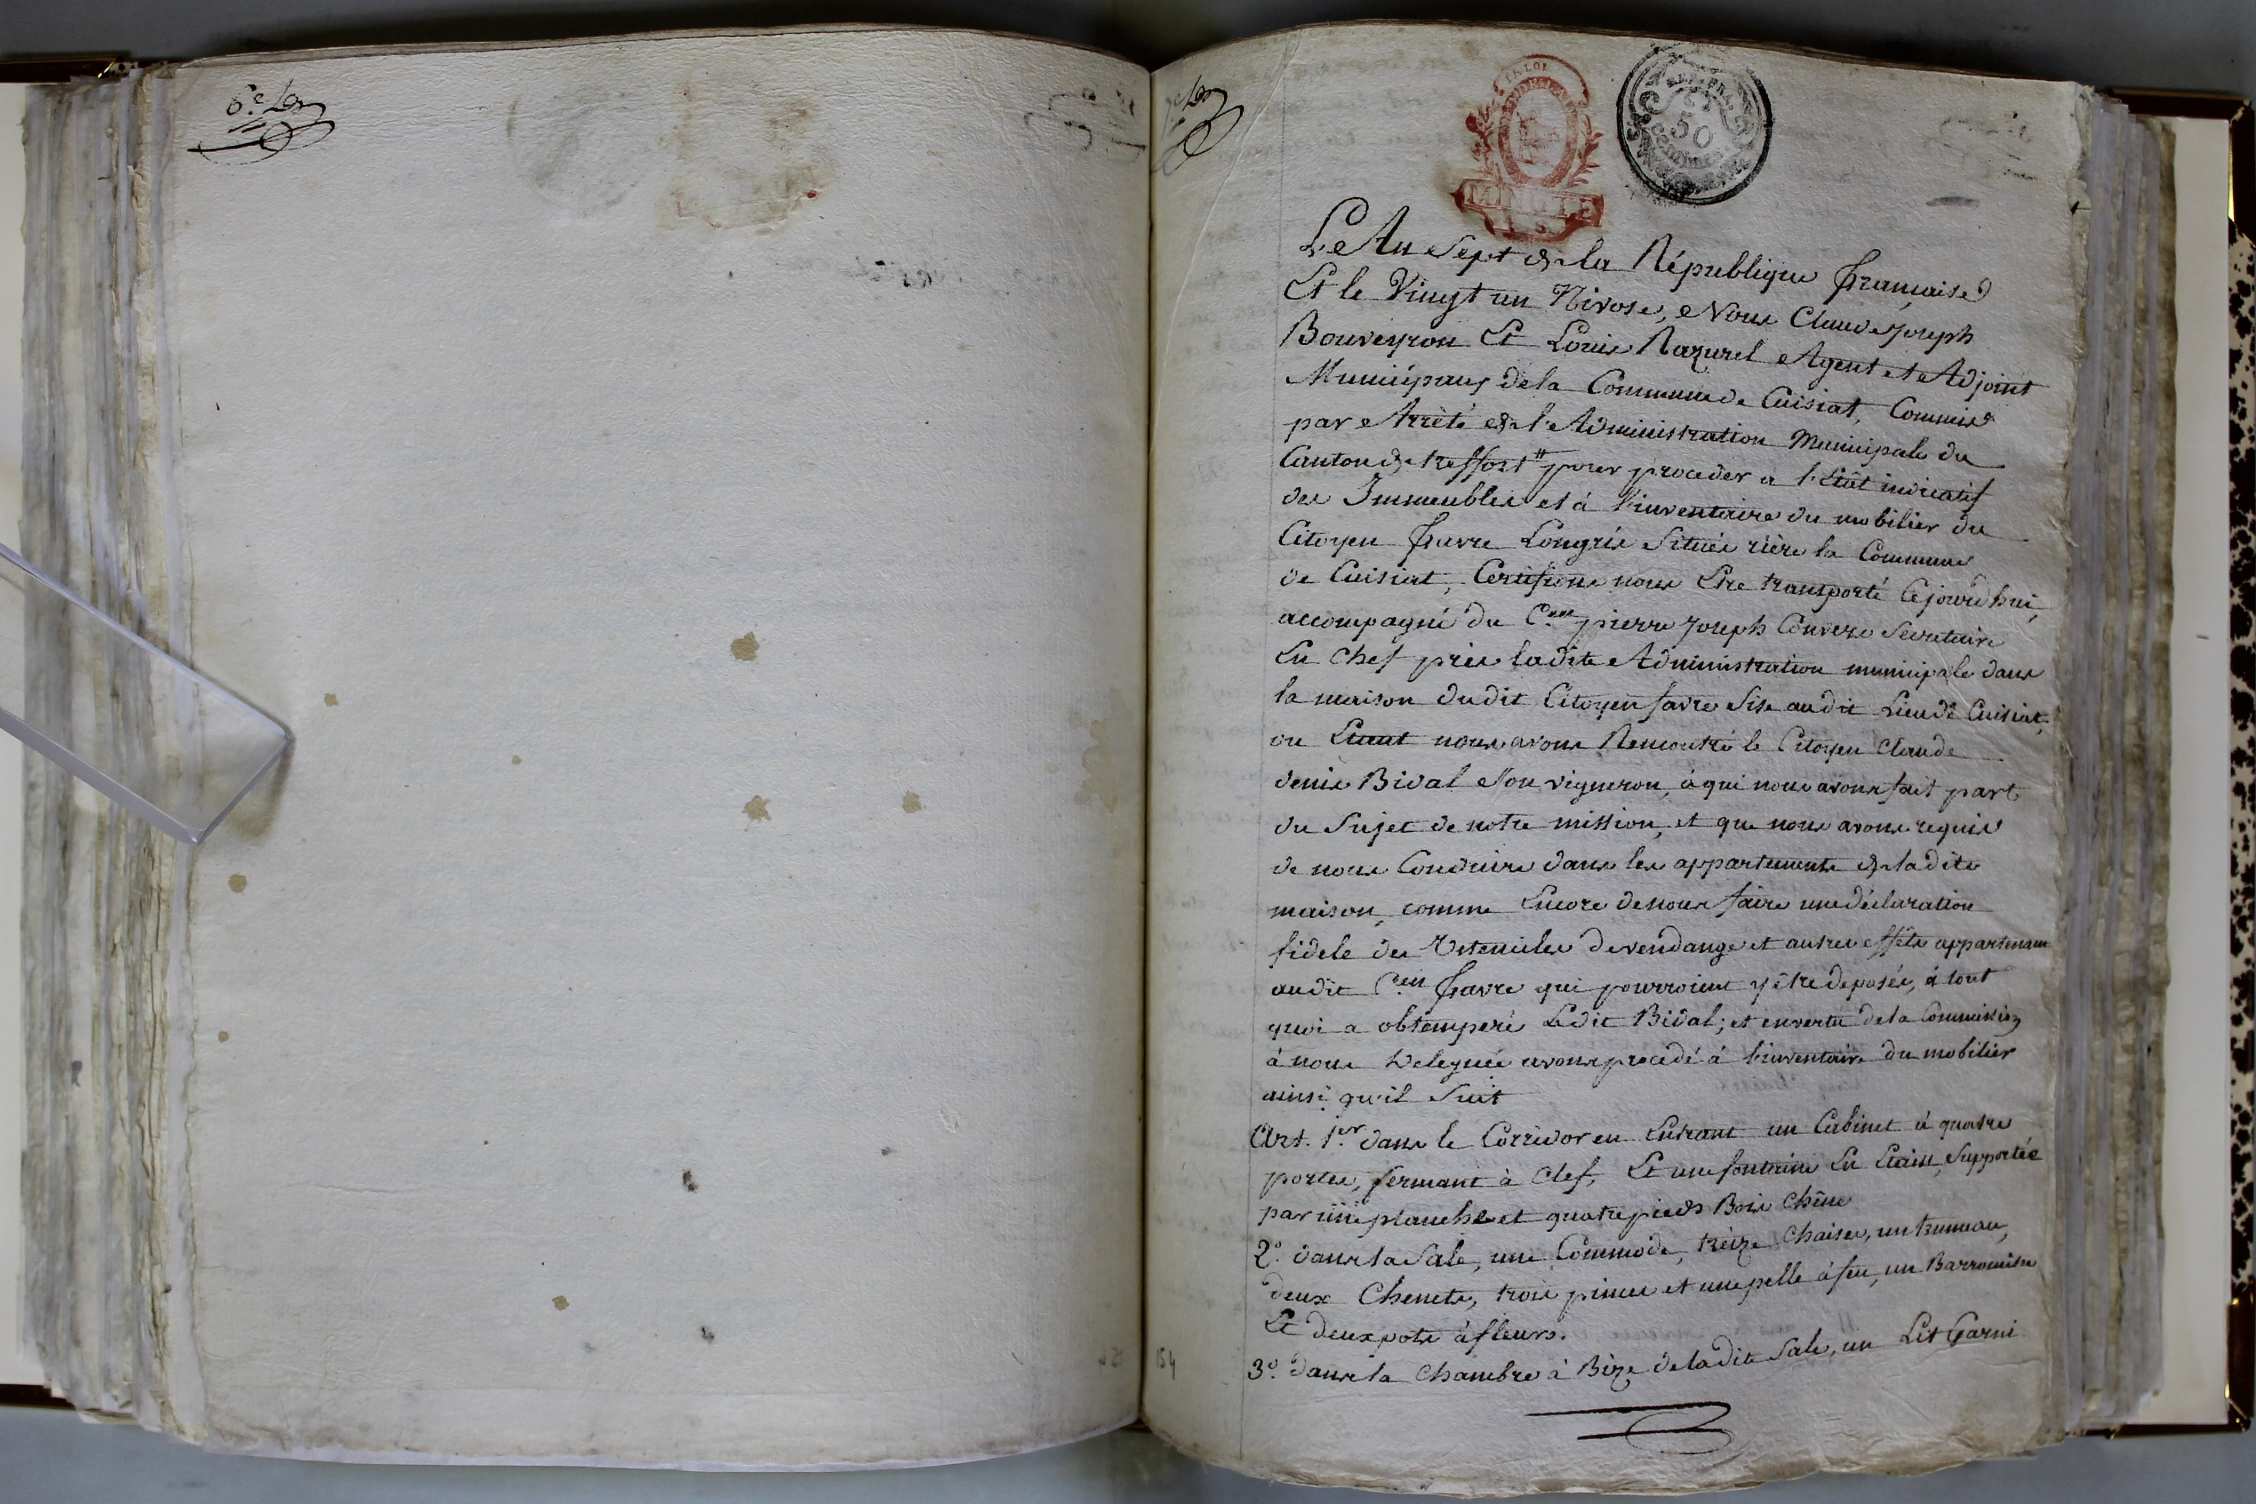 6.e
7.e
LA LOI
REP. FRA.
50
centimes
L'e An Sept de la République française
Et le Vingt un Nivose, Nous Claude Joseph
Bouveyron Et Louis Razurel Agent et Adjoint
Municipaux de la Commune de Cuisiat, Commis
par Arrêté de l'Administration Municipale du
Canton de treffort pour proceder a l'Etât indicatif
des Immeubles et à l'inventaire du mobilier du
Citoyen favre Longris Situés rière la Commune
de Cuisiat, Certifions nous Etre transporté Cejourd'hui,
accompagné du C.en pierre Joseph Convers Secretaire
En Chef près ladite Administration municipale dans
la maison dudit Citoyen favre Sise audit Lieu de Cuisiat,
ou Etant nous avons Rencontré le Citoyen Claude
denis Bidal Son vigneron, à qui nous avons fait part
du Sujet de notre mission, et que nous avons requis
de nous Conduire dans les appartements de ladite
maison, comme Encore de nous faire une déclaration
fidele des Ustenciles de vendange et autres effêts appartenans
audit C.en favre qui pourroient y être deposés, à tout
quoi a obtemperé Ledit Bidal; et en vertu de la Commission
à nous Deleguée avons procedé à l'inventaire du mobilier
ainsi qu'il Suit
Art. 1.er dans le Corridor en Entrant un Cabinet à quatre
portes, fermant à Clef, Et une fontaine En Etain, Supportée
par une planche et quatre pieds Bois Chêne
2.o dans la Sale, une Commode, treize Chaises, un trumeau,
deux Chenets, trois pinces et une pelle à feu, un Barromêtre
Et deux pots à fleurs.
3.o dans la Chambre à Bize de ladite Sale, un Lit Garni
154